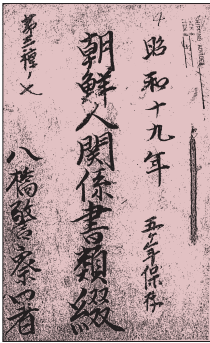 昭和十九年
五ヶ年保存
朝鮮人関係書類綴
第三種ノ七
八橋警察署